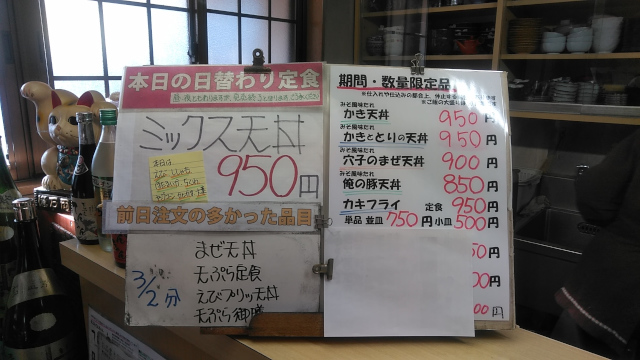 本日の日替わり定食
ミックス天丼
本日は
950円
前日注文の多かった品目
3/2分
まぜ天丼
天ぷら定食
えびプリッ天丼
天ぷら御膳
期間・数量限定品
みそ風味たれ
かき天丼 950円
みそ風味たれ
かきととりの天丼 950円
みそ風味たれ
穴子のまぜ天丼 900円
みそ風味たれ
俺の豚天丼 850円
カキフライ 定食 950円
単品 並皿 750円 小皿 500円
50円
00円
00円